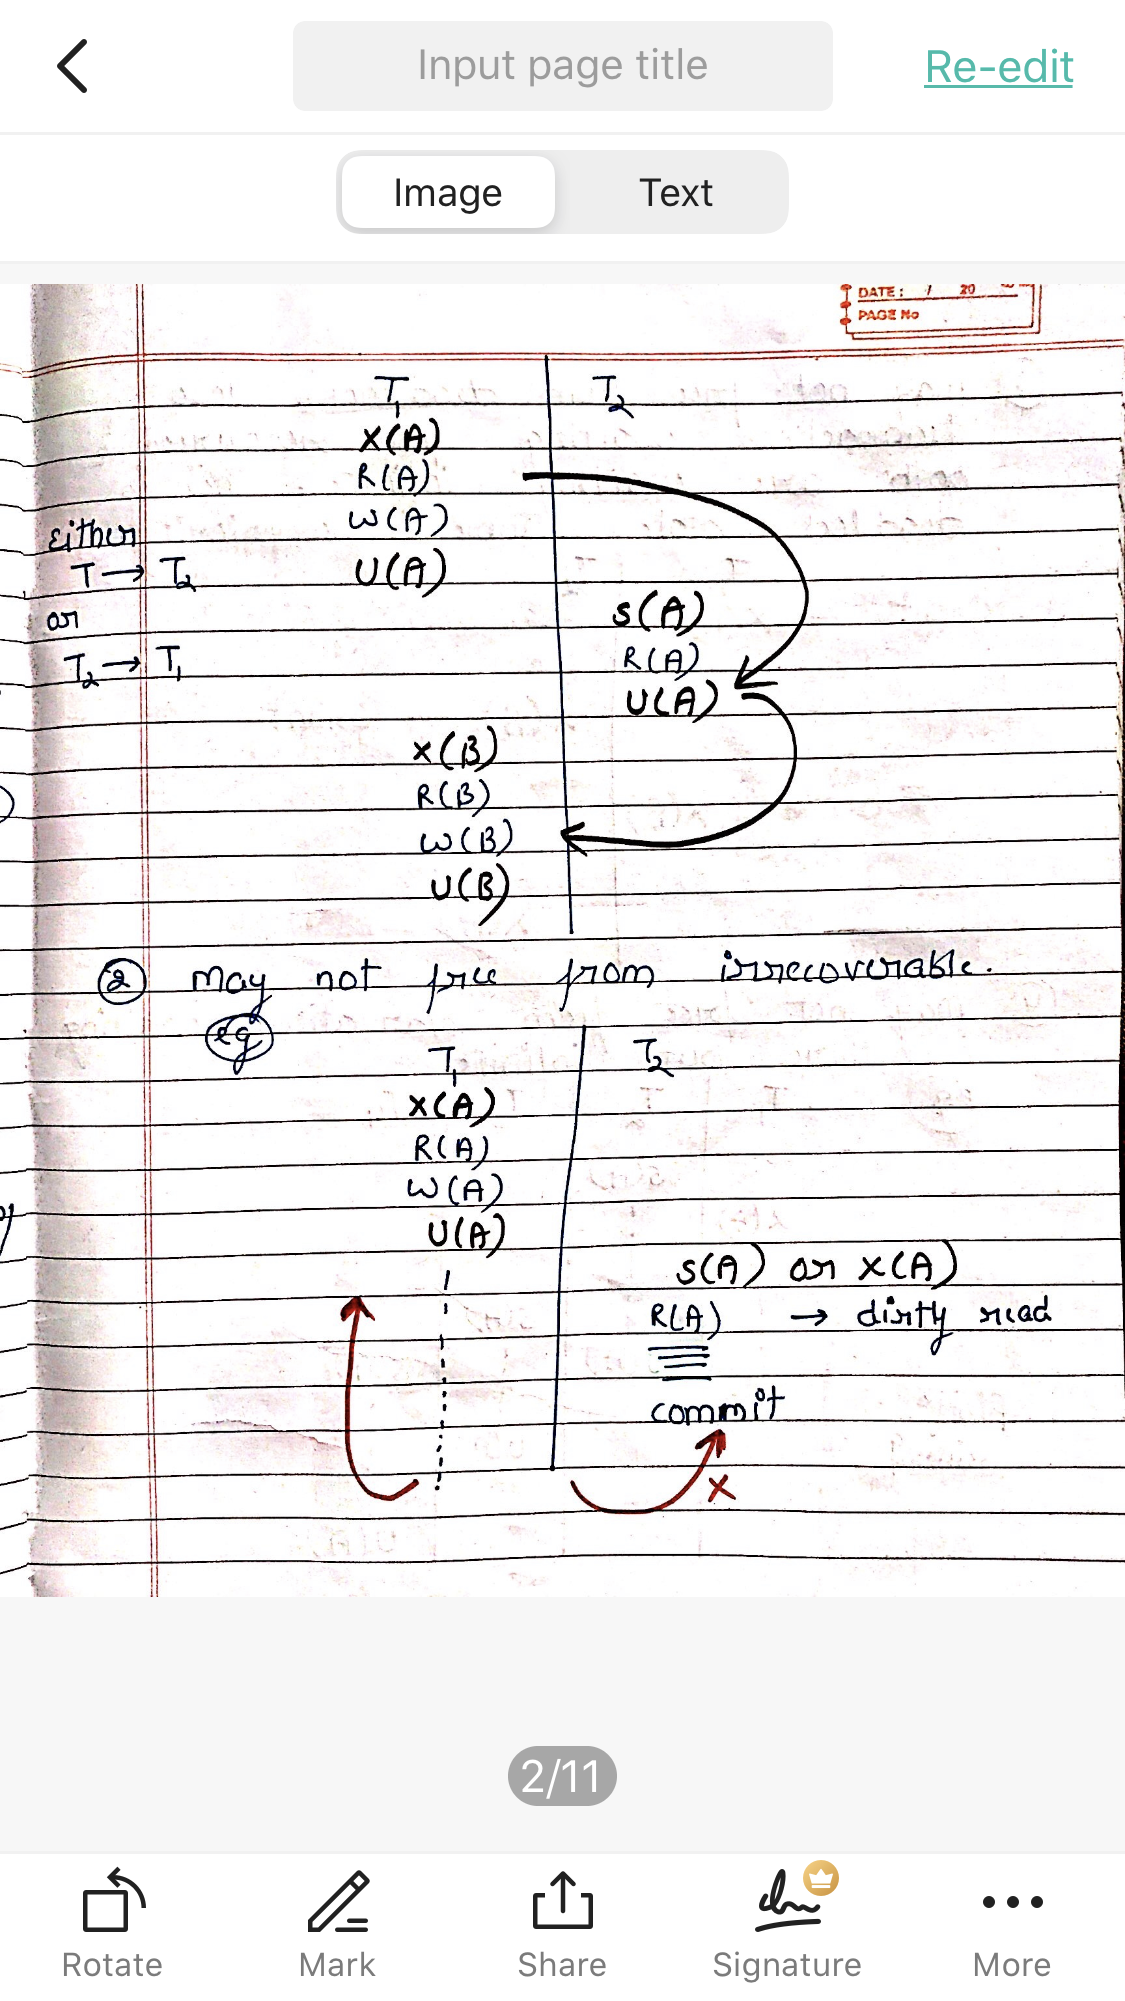 Input page title
Re-edit
Image
Text
DATE: / 20
PAGE No
T1 T2
X(A)
R(A)
W(A)
U(A)
Either
T → T2
or
T2 → T1
S(A)
R(A)
U(A)
X(B)
R(B)
W(B)
U(B)
② may not free from irrecoverable.
eg
T1 T2
X(A)
R(A)
W(A)
U(A)
S(A) or X(A)
R(A) → dirty read
commit
X
2/11
Rotate
Mark
Share
Signature
More